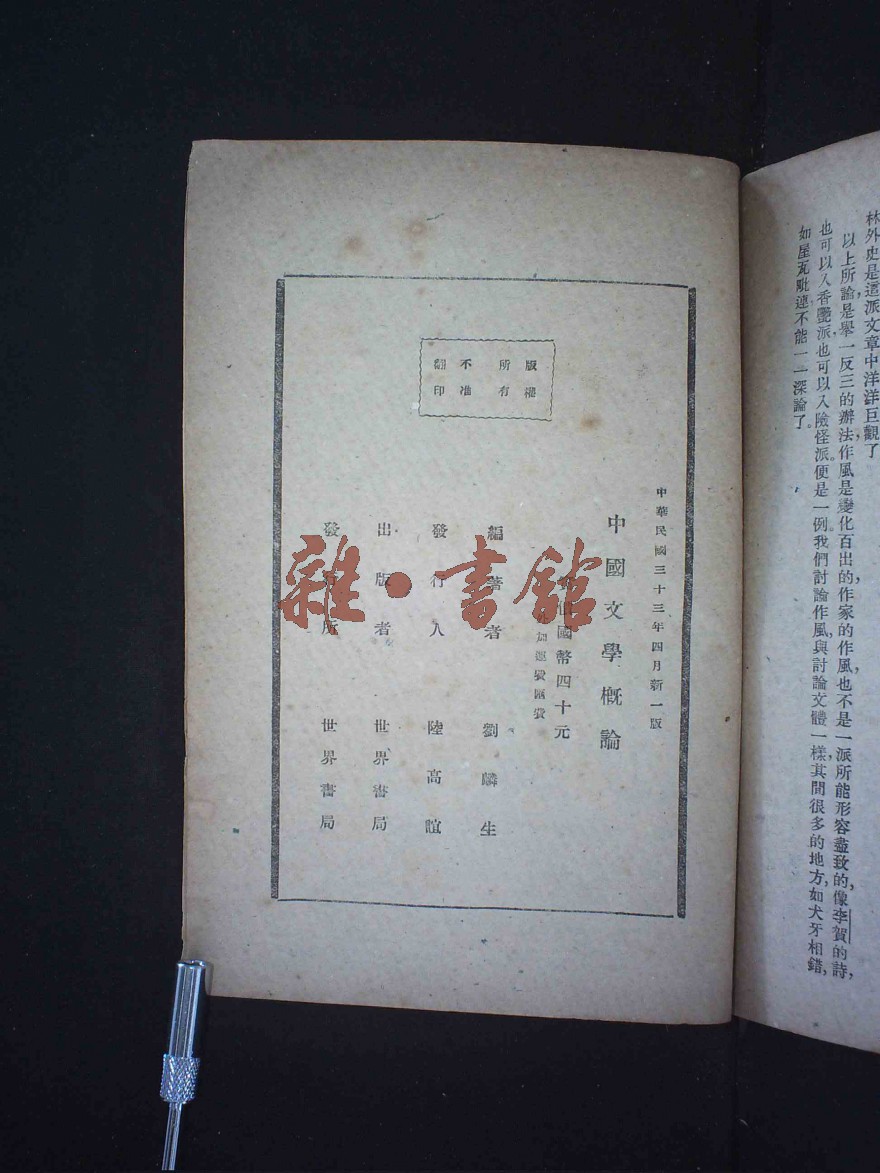 林外史是這派文章中洋洋巨觀了
以上所論,是舉一反三的辦法,作風是變化百出的,作家的作風,也不是一派所能形容盡致的,像李賀的詩,
也可以入香艷派,也可以入險怪派,便是一例。我們討論作風,與討論文體一樣,其間很多的地方,如犬牙相錯,
如屋瓦毗連,不能一一深論了。
版權所有
不准翻印
中華民國三十三年四月新一版
中國文學概論
國幣四十元
外加運費匯費
編著者 劉麟生
發行人 陸高誼
出版者 世界書局
發行所 世界書局
雜·書館